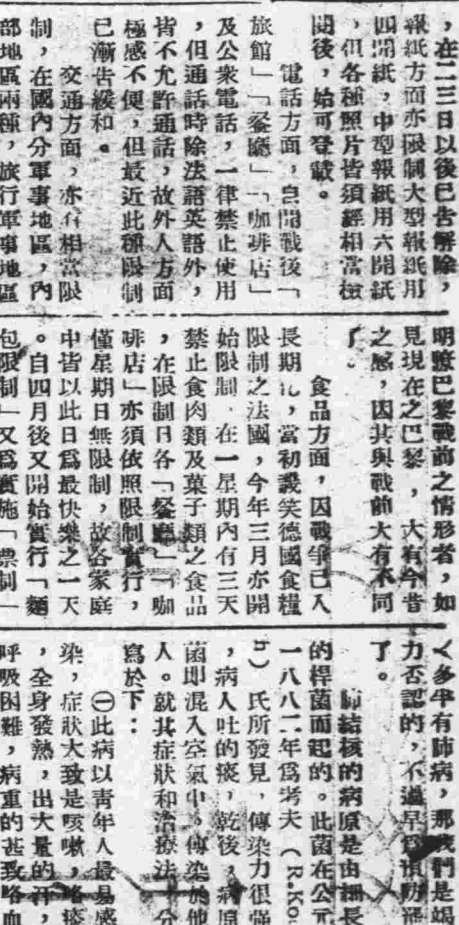 ，在二三日以後已告解除，
報紙方面亦限制大型報紙用
四開紙，中型報紙用六開紙
，但各種照片皆須經相當檢
閱後，始可登載。
電話方面，自開戰後「
旅館」「餐廳」「咖啡店」
及公衆電話，一律禁止使用
，但通話時除法語英語外，
皆不允許通話，故外人方面
極感不便，但最近此種限制
已漸告緩和。
交通方面，亦有相當限
制，在國內分軍事地區，內
部地區兩種，旅行軍事地區
明瞭巴黎戰前之情形者，如
見現在之巴黎，大有今昔
之感，因其與戰前大有不同
了。
食品方面，因戰爭已入
長期化，當初譏笑德國食糧
限制之法國，今年三月亦開
始限制．在一星期內有三天
禁止食肉類及菓子類之食品
，在限制日各「餐廳」「咖
啡店」亦須依照限制實行，
僅星期日無限制，故各家庭
中皆以此日爲最快樂之一天
。自四月後又開始實行「麵
包限制」又爲實施「票制」
く多半有肺病，那我們是竭
力否認的，不過早爲預防罷
了。
肺結核的病原是由細長
的桿菌而起的。此菌在公元
一八八二年爲考夫（R.Ko
h）氏所發見，傳染力很强
，病人吐的痰，乾後，病原
菌即混入空氣中。傳染於他
人。就其症狀和治療法，分
寫於下：
㊀此病以青年人最易感
染，症狀大致是咳嗽，咯痰
，全身發熱，出大量的汗，
呼吸困難，病重的甚致咯血